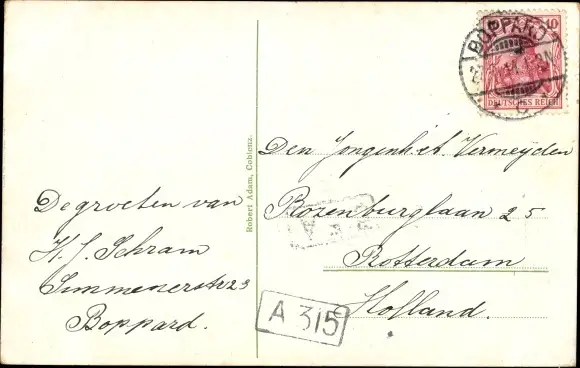 BOPPARD
10
DEUTSCHES REICH
Robert Adam, Coblenz.
De groeten van
H. J. Schram
Simmenerstr 23
Boppard.
Den Jongenh.t. Vermeyden
Rozenburglaan 25
Rotterdam
Holland.
A 315